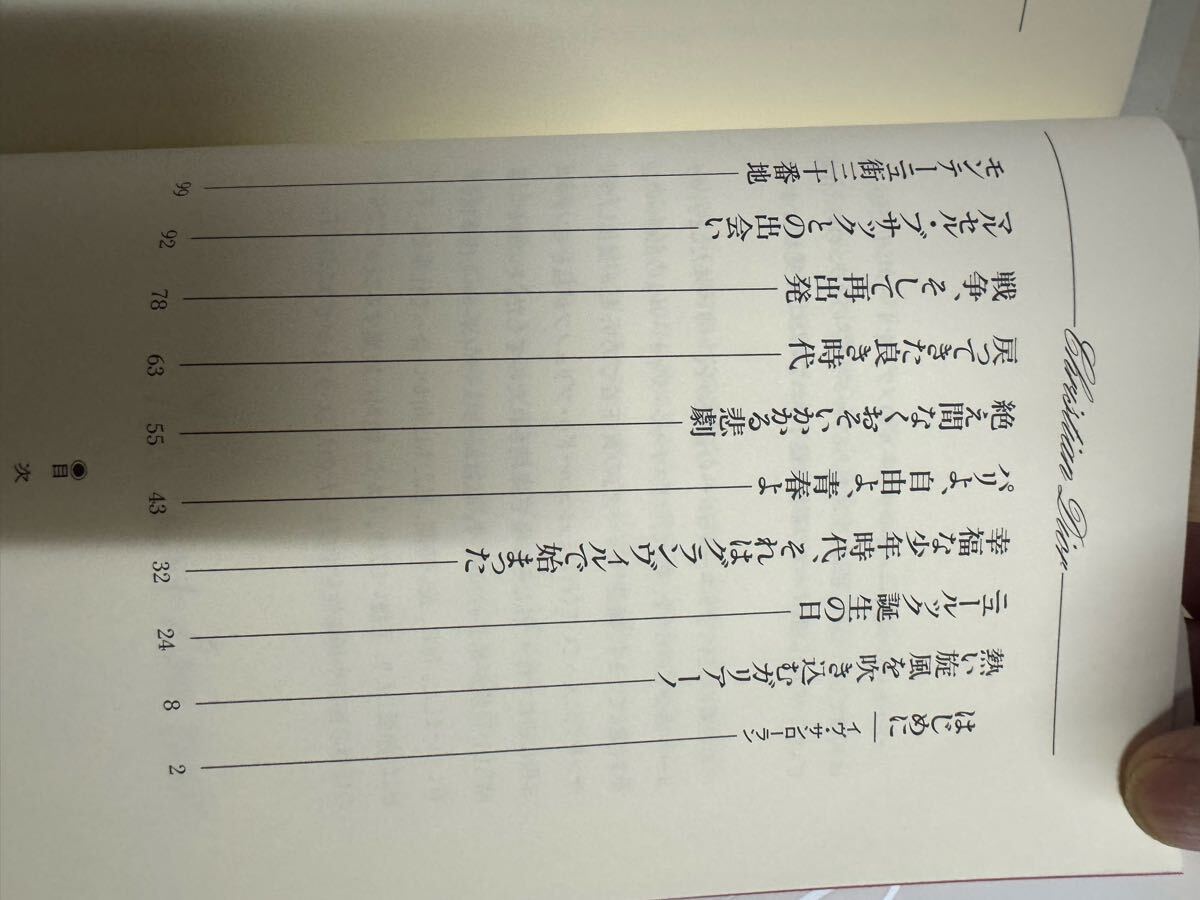 Christian Dior
はじめに│イヴ・サンローラン 2
熱い旋風を吹き込むガリアーノ 8
ニュールック誕生の日 24
幸福な少年時代、それはグランヴィルで始まった 32
パリよ、自由よ、青春よ 43
絶え間なくおそいかかる悲劇 55
戻ってきた良き時代 63
戦争、そして再出発 78
マルセル・ブサックとの出会い 92
モンテーニュ街三十番地 99
◉目次